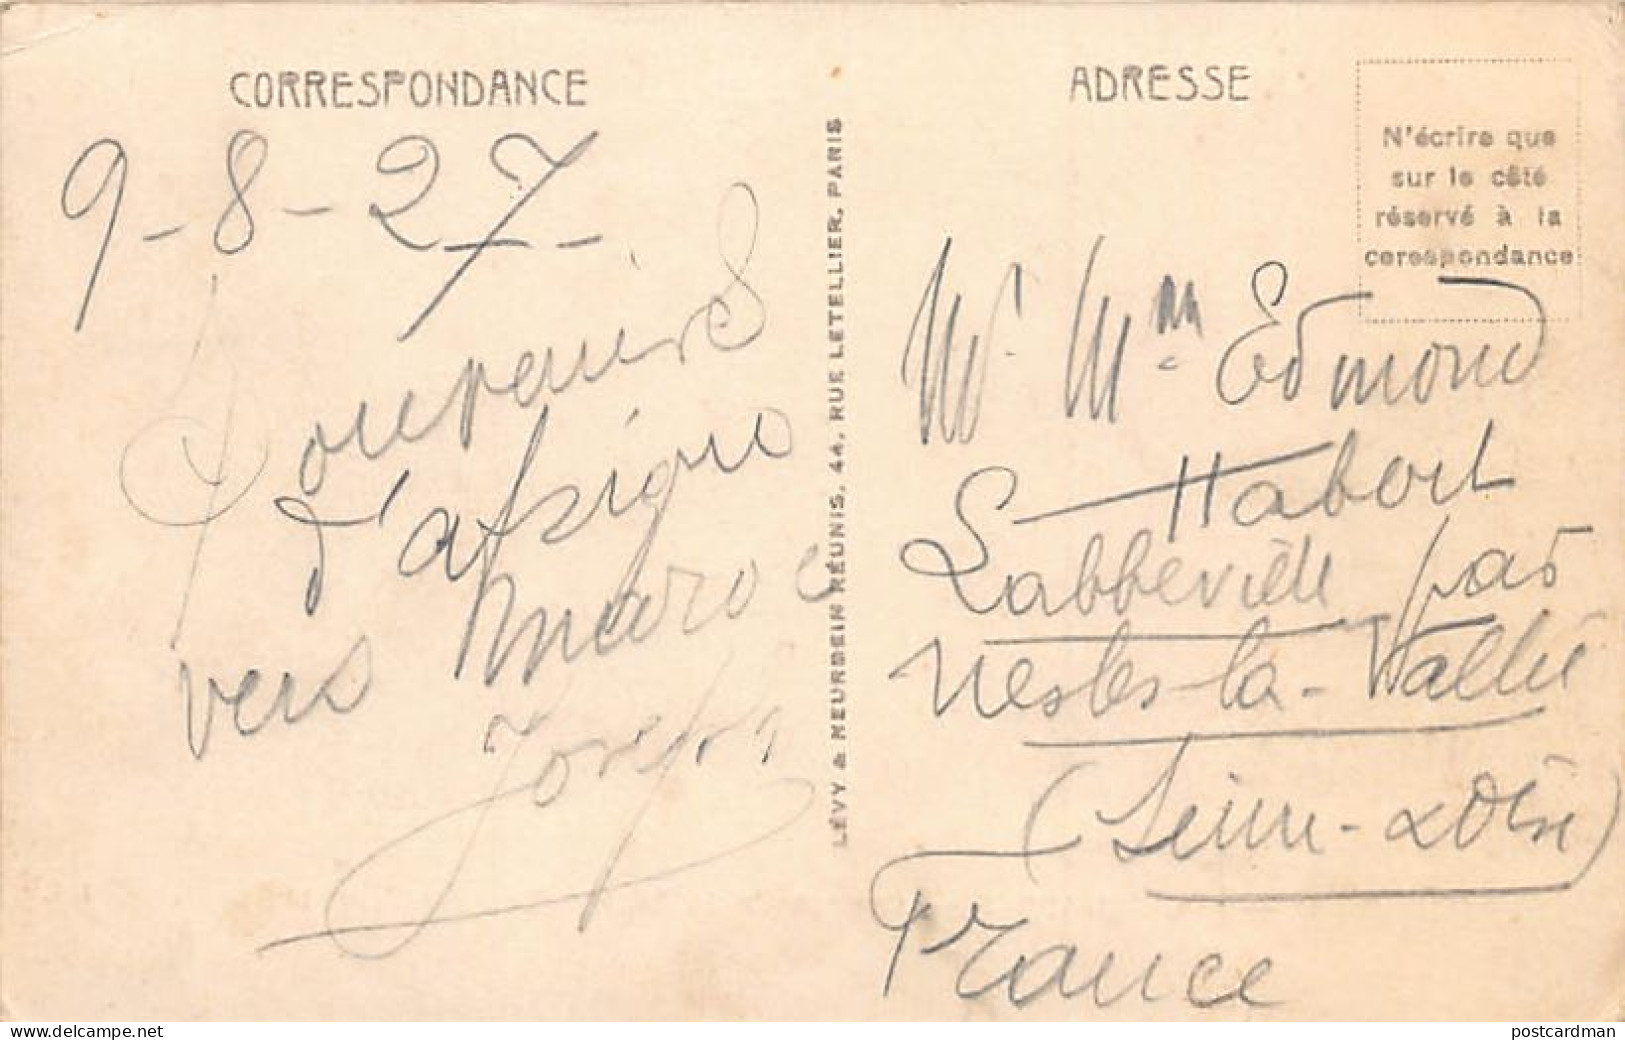 CORRESPONDANCE
9-8-27-
Souvenirs
d'
vers Maroc
Joseph
LÉVY & NEURDEIN RÉUNIS, 44, RUE LETELLIER, PARIS
ADRESSE
N'écrire que
sur le côté
réservé à la
corespondance
Mr Mme Edmond
Habort
Labbeville par
Nesles-la-Vallée
(Seine-&Oise)
France
www.delcampe.net
postcardman